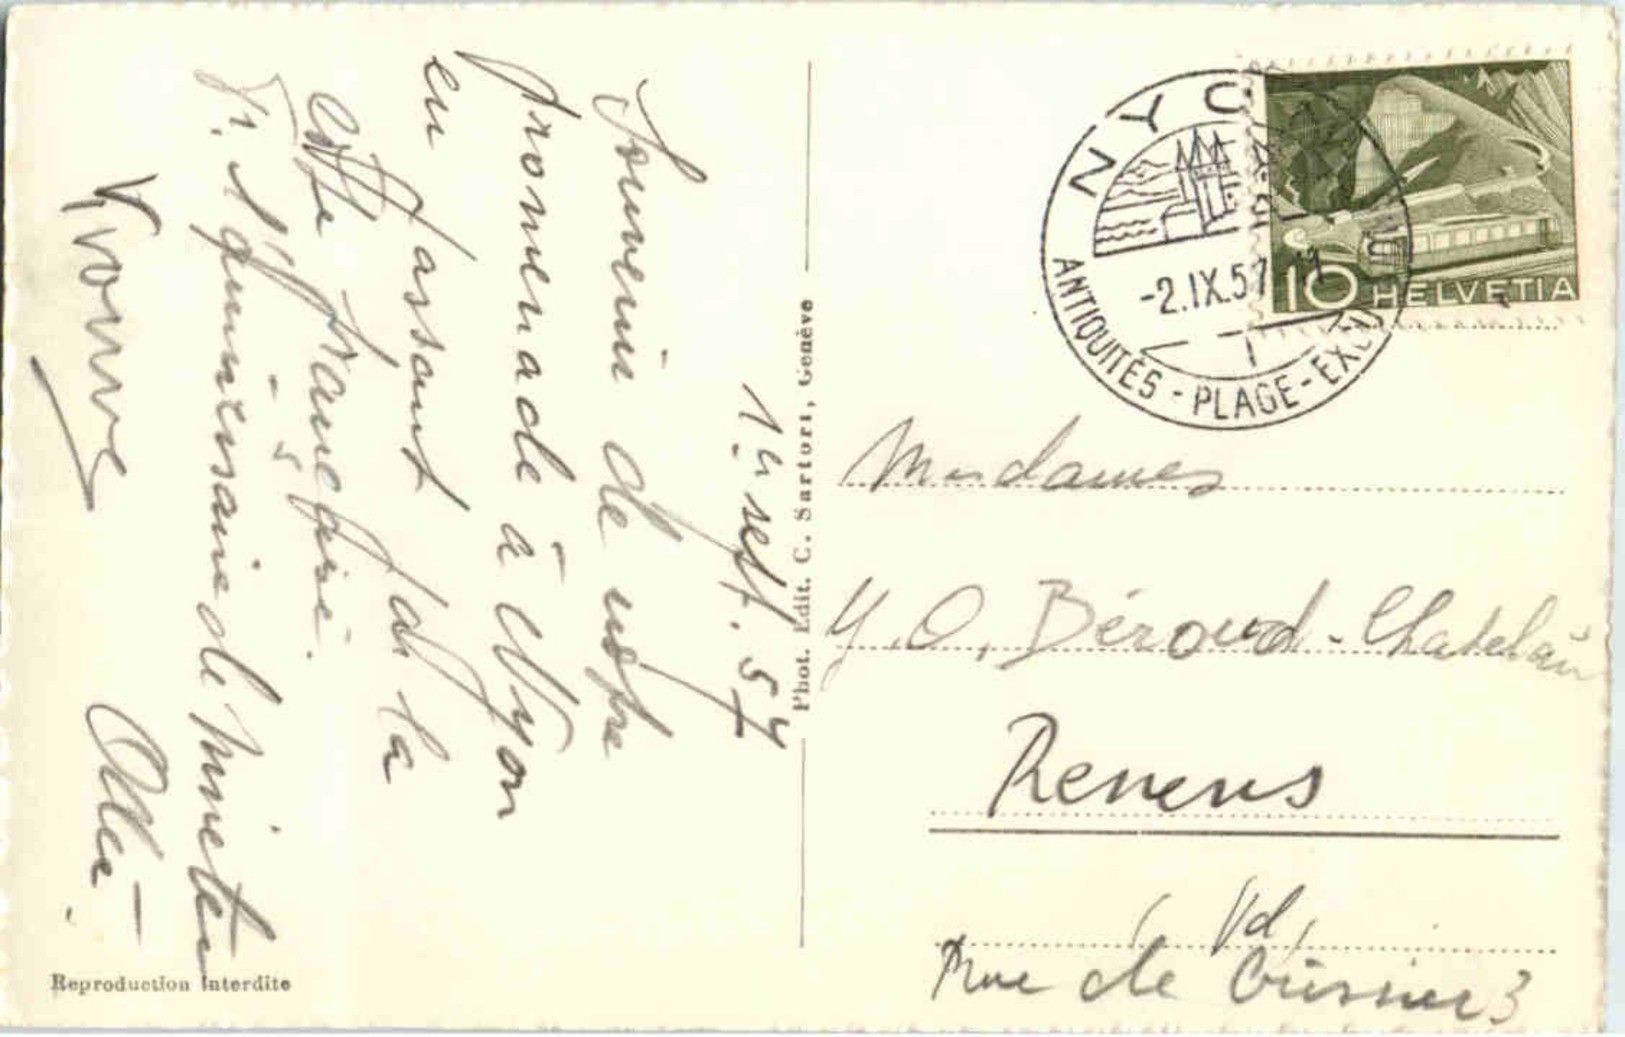 1er sept. 57
Souvenir de notre
promenade à Nyon
en passant par la
côte française.
p. l'anniversaire de
Yvonne Alice
Phot. Edit. C. Sartori, Genève
Reproduction interdite
NYON
-2.IX.57
ANTIQUITÉS - PLAGE -
10 HELVETIA
Mesdames
Y. O. Béroud-Chatelain
Renens
(Vd)
Rue de Crissier 3